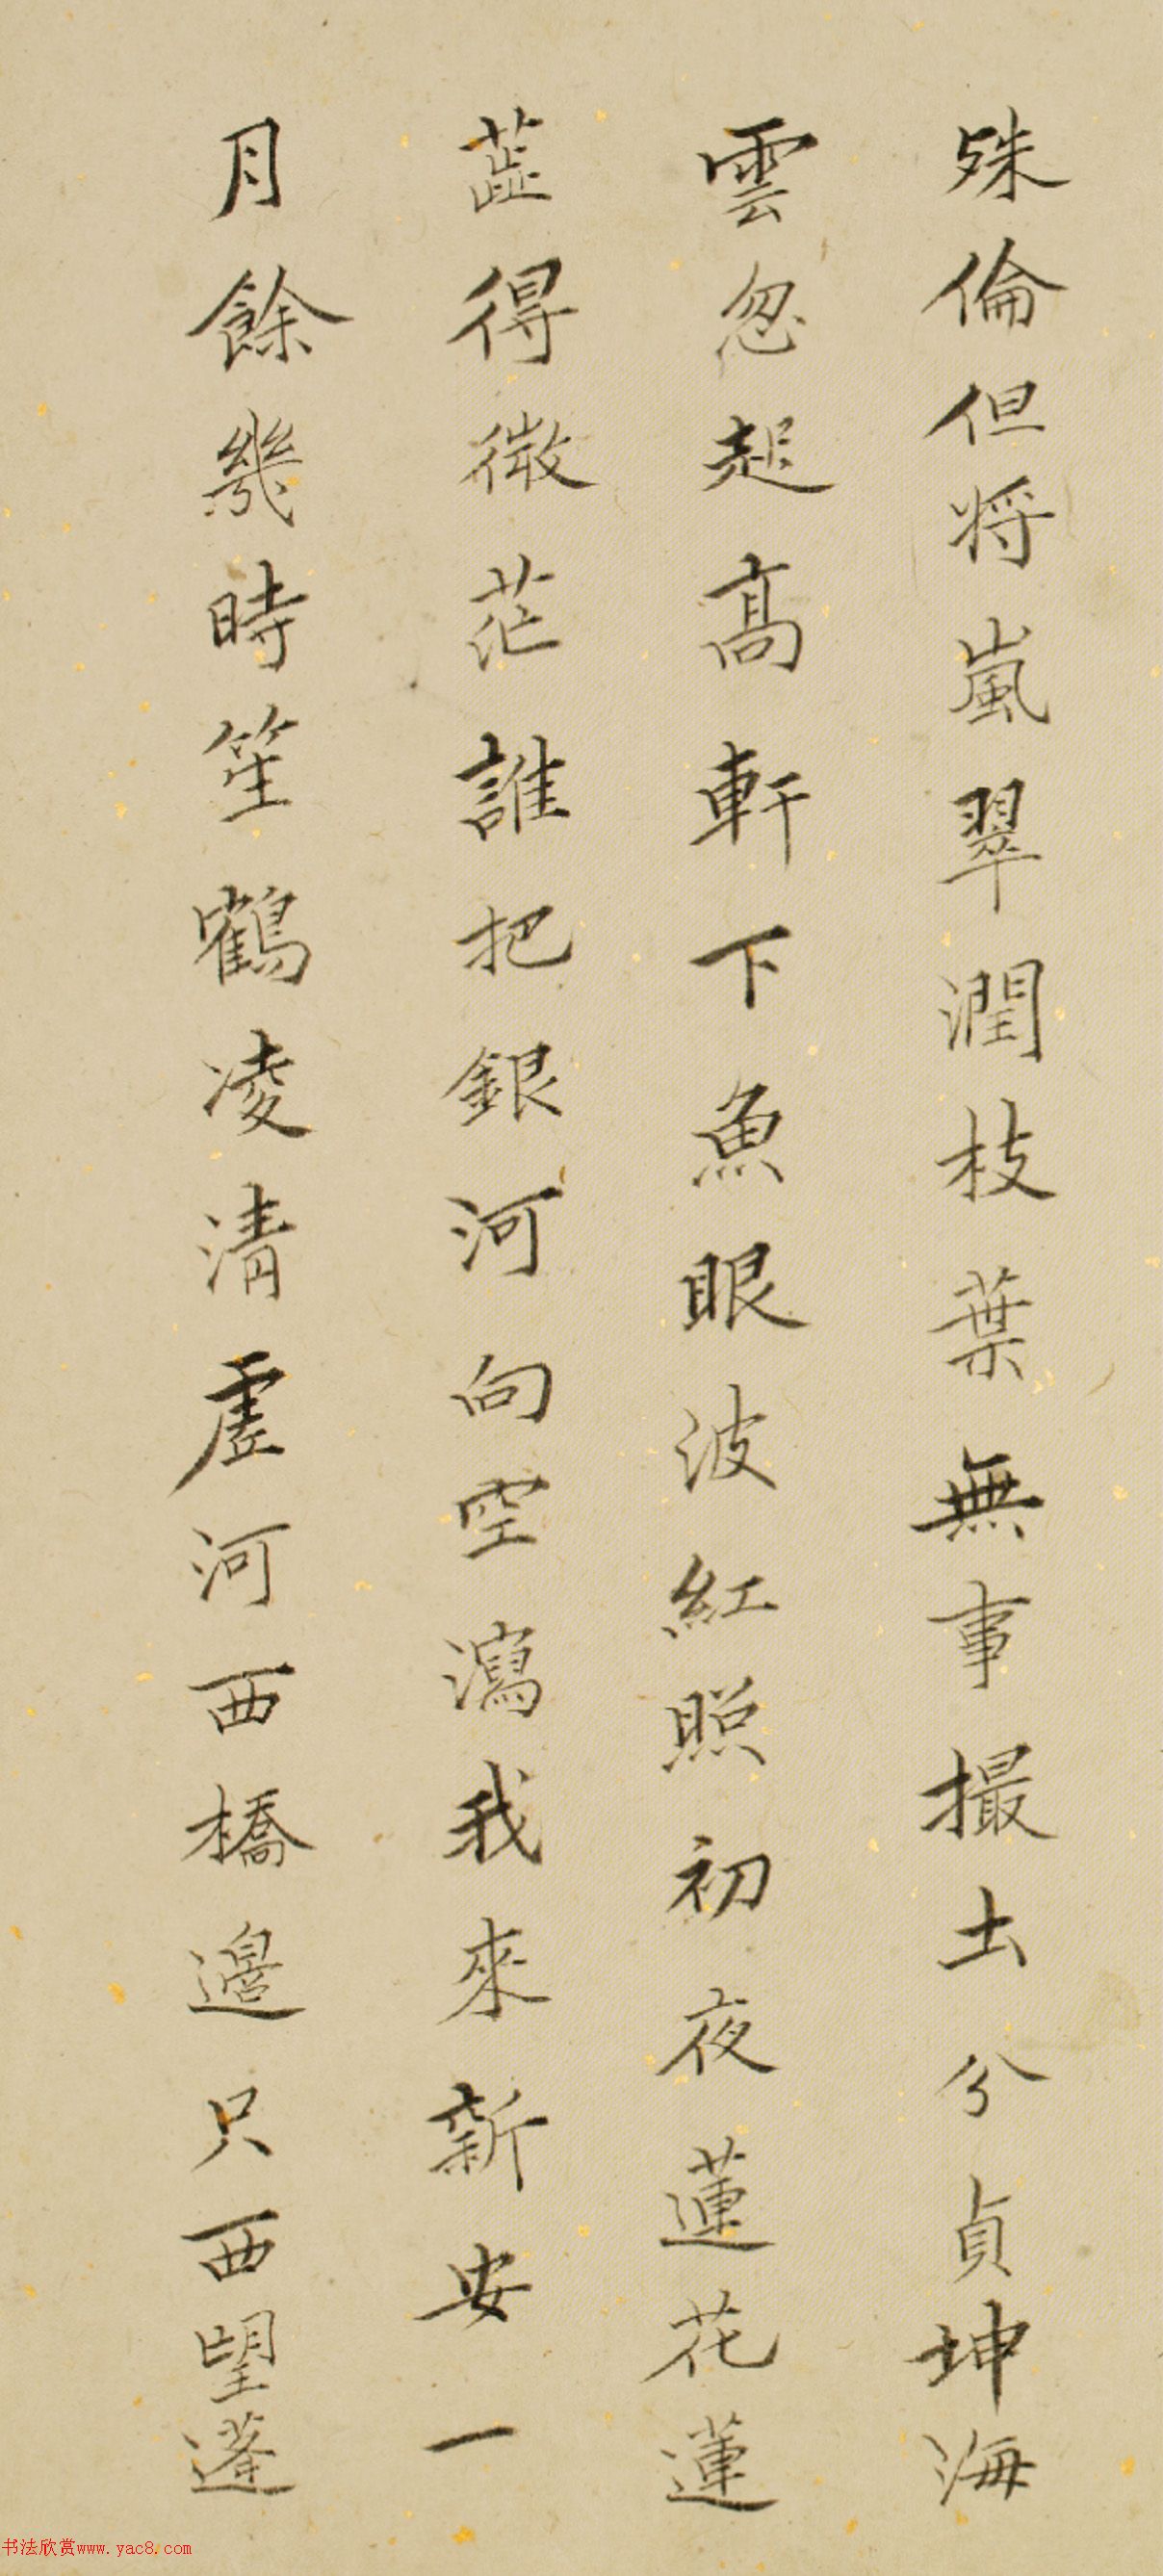 殊倫但將嵐翠潤枝葉無事撮土兮貞坤海
雲忽起高軒下魚眼波紅照初夜蓮花蓮
蕋得微茫誰把銀河向空瀉我來新安一
月餘幾時笙鶴凌清虛河西橋邊只西望蓬
书法欣赏www.yac8.com